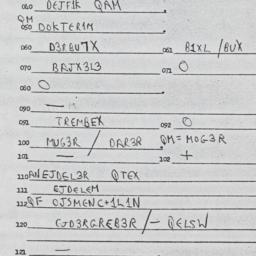 060 DEJF1K QAM
QM
050 DOKTER1M
060 D3RBU7X 061 B1XL / BUX
070 BRJX3L3 071 O
080 O
090 —
091 TREMBEX 092 O
100 MUG3R / DAR3R QM = MOG3R
101 — 102 +
110 AN EJDEL3R QTEX
111 EJDELEM
112 QF OJSMENC+1L1N
120 GJD3RGREB3R / — QELSW
121 —